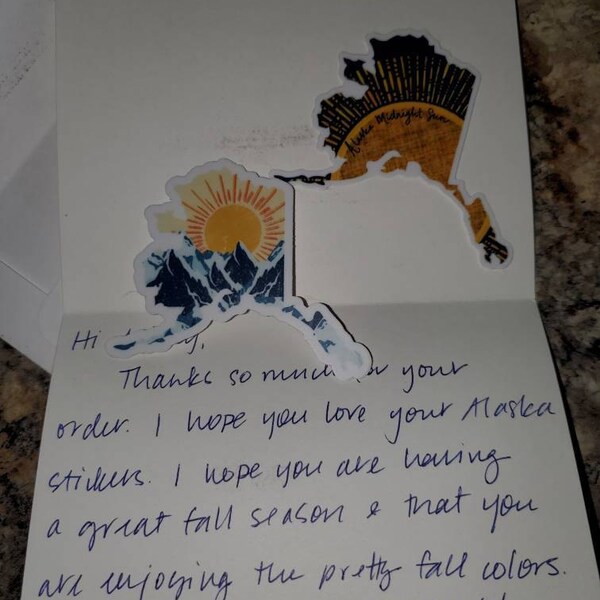 Alaska Midnight Sun
Hi
Thanks so much for your
order. I hope you love your Alaska
stickers. I hope you are having
a great fall season & that you
are enjoying the pretty fall colors.